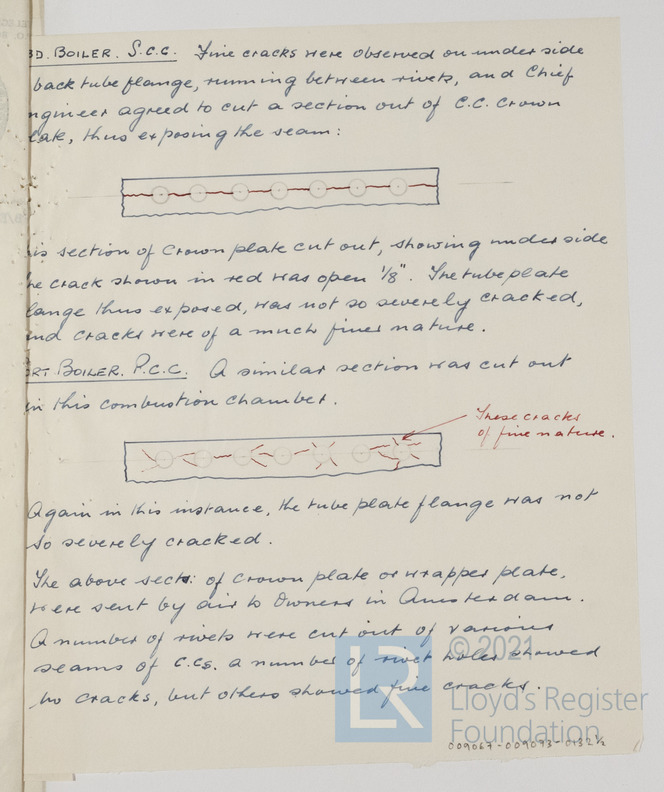 BD. BOILER. S.C.C. Fine cracks were observed on underside
back tube flange, running between rivets, and Chief
ngineer agreed to cut a section out of C.C. Crown
late, thus exposing the seam:
is section of Crown plate cut out, showing underside
he crack shown in red was open 1/8". The tubeplate
lange thus exposed, was not so severely cracked,
and cracks were of a much finer nature.
ORT BOILER. P.C.C. A similar section was cut out
in this combustion chamber.
These cracks
of fine nature.
Again in this instance, the tube plate flange was not
so severely cracked.
The above sects: of crown plate or wrapper plate,
were sent by air to Owners in Amsterdam.
A number of rivets were cut out of various
seams of C.Cs. a number of rivet holes showed
no cracks, but others showed fine cracks.
© 2021
LR
Lloyd's Register
Foundation
009067-009093-0132½